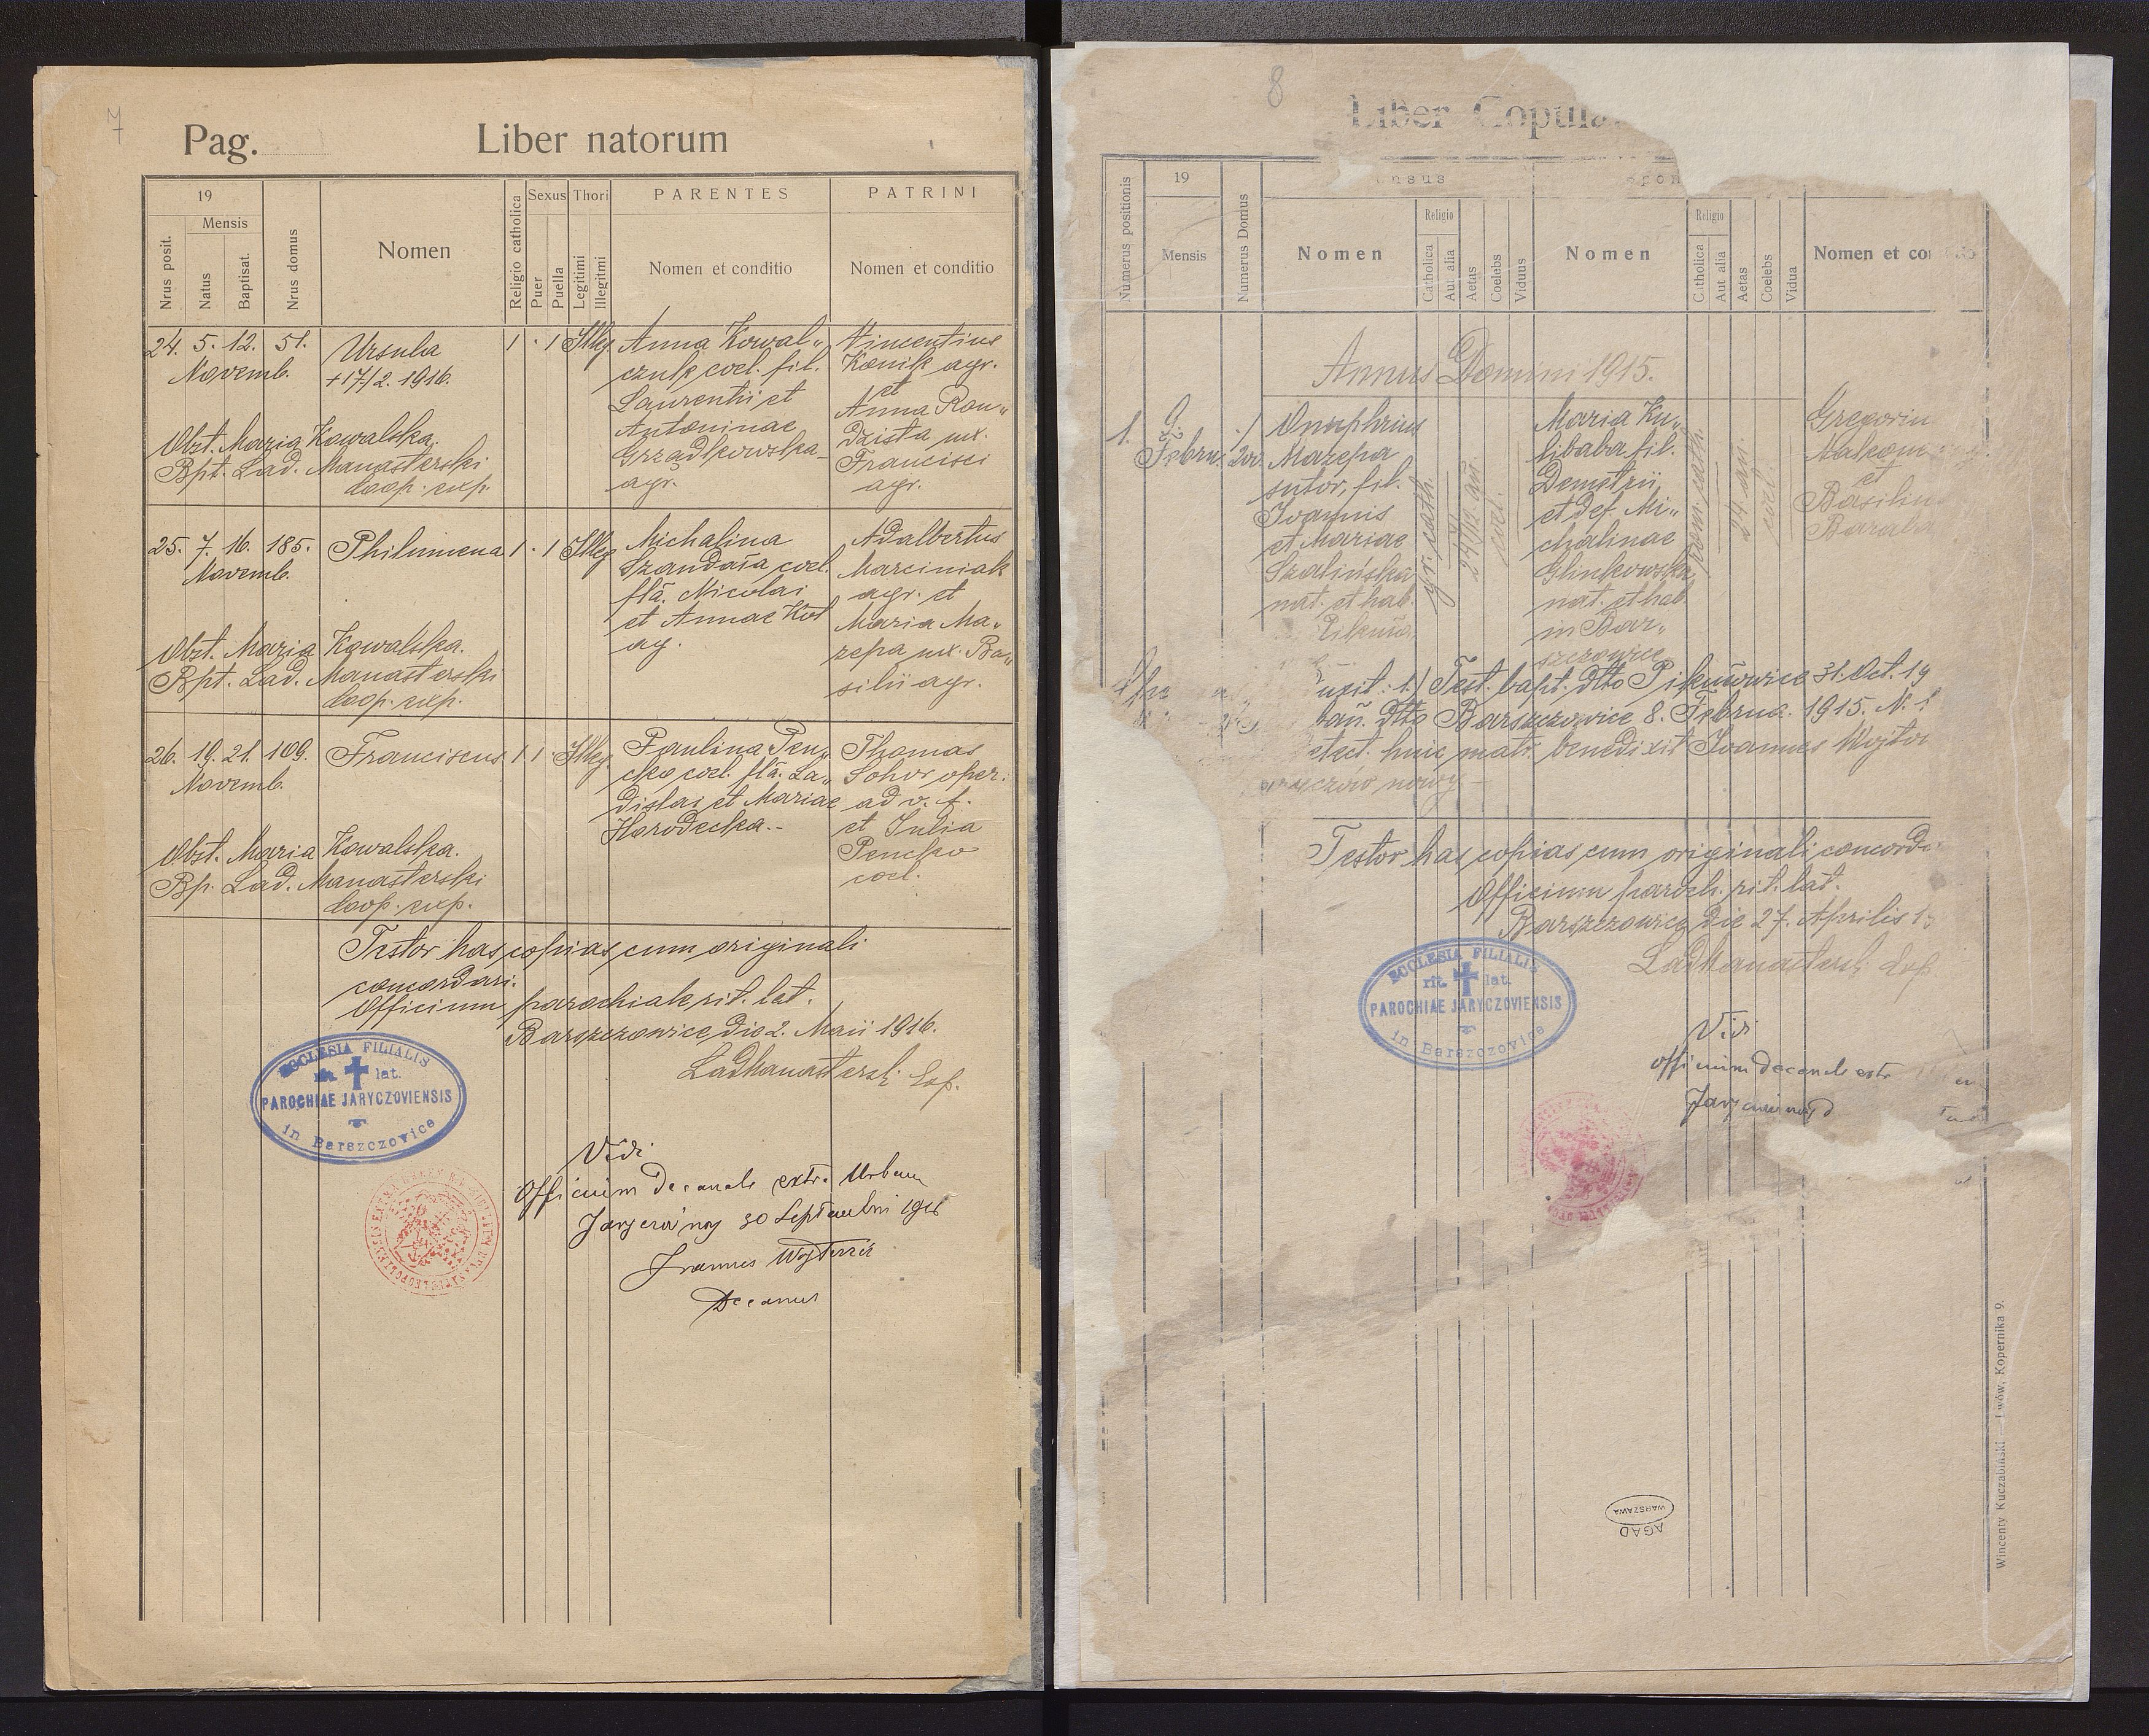 7
Pag.
Liber natorum
19
Mensis
Nrus posit.
Natus
Baptisat.
Nrus domus
Nomen
Religio catholica
Sexus
Puer
Puella
Thori
Legitimi
Illegitmi
PARENTES
Nomen et conditio
PATRINI
Nomen et conditio
24. 5. 12. 51.
Novemb.
Ursula
+17/2. 1916.
1 · 1 Illeg.
Anna Kowal„
czuk coel. fil.
Laurentii et
Antoninae
Grządkowska
agr.
Vincentius
Konik agr.
et
Anna Ron„
dzista ux.
Francisci
agr.
Obst. Maria Kowalska.
Bpt. Lad. Manasterski
Coop. exp.
25. 7. 16. 185.
Novemb.
Philumena
1 · 1 Illeg
Michalina
Szandała coel.
fla. Nicolai
et Annae Kot
ag.
Adalbertus
Marciniak
agr. et
Maria Ma„
zepa ux. Ba„
silii agr.
Obst. Maria Kowalska.
Bpt. Lad. Manasterski
Coop. exp.
26. 19. 21. 109.
Novemb.
Franciscus
1 1 · Illeg.
Paulina Pen„
cko coel. fla. La„
dislai et Mariae
Horodecka.-
Thomas
Sohor oper.
ad v. f.
et Julia
Pencko
coel.
Obst. Maria Kowalska.
Bp. Lad. Manasterski
Coop. exp.
Testor has copias cum originali
concordari.
Officium parochiale rit. lat.
Barszczowice, die 2. Maii 1916.
LadManastersk. Exp.
ECCLESIA FILIALIS
rit. lat.
PAROCHIAE JARYCZOVIENSIS
in Barszczovice
Vidi
Officium decanale extra Urbem
30 Septembri 1916
Joannes
Decanus
8
Liber Copula
19
Numerus positionis
Mensis
Numerus Domus
nsus
Nomen
Religio
Catholica
Aut alia
Aetas
Coelebs
Viduus
pon
Nomen
Religio
Catholica
Aut alia
Aetas
Coelebs
Vidua
Nomen et co
Annus Domini 1915.
1.
9.
Febru.
Onuphrius
Mazepa
sutor, fil.
Joannis
et Mariae
Szalińska
nat. et hab.
Pikuło
gr. cath.
coel.
Maria Ku„
libaba fil.
Demetrii
et def. Mi„
chalinae
Glinkowska,
nat. et hab.
in Bar„
szczowice
rom. cath.
24 an.
coel.
Gregoriu
et
Basiliu
Baraba
uxit: 1./ Test. bapt. dtto Pikułowice 31. Oct. 19
ban. dtto Barszczowice 8. Februa. 1915. N.
huic matr. benedixit Joannes Wojtow
nowy
Testor has copias cum originali concorda
Officium paroch. rit. lat.
Barszczowice, die 27. Aprilis 1
LadManastersk. Exp
ECCLESIA FILIALIS
rit. lat.
PAROCHIAE JARYCZOVIENSIS
in Barszczovice
Vidi
Officium decanale extr
AGAD
WARSZAWA
Wincenty Kuczabiński — Lwów, Kopernika 9.